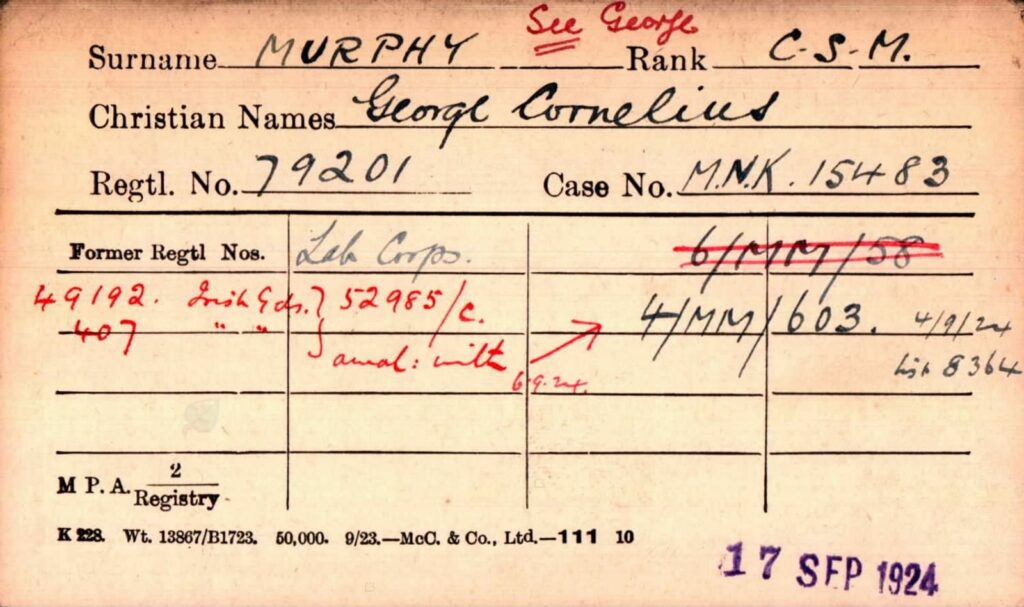 See George
Surname MURPHY Rank C-S-M.
Christian Names George Cornelius
Regtl. No. 79201 Case No. M.N.K. 15483
Former Regtl Nos. Lab Corps. 6/MM/58
49192. Irish Gds. } 52985/C. 4/MM/603. 4/9/24
407 " " } amal: with 6.9.24. List 8364
M P. A. 2
Registry
K 228. Wt. 13867/B1723. 50,000. 9/23.—McC. & Co., Ltd.—111 10
17 SEP 1924